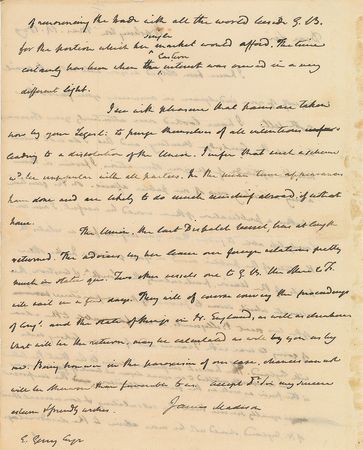 of renouncing the trade with all the world besides G. B.
single
for the portion which her market would afford. The time
Eastern
certainly has been when the interest was viewed in a very
different light.
I see with pleasure that pains are taken
now by your Legisl: to purge themselves of all intentions
leading to a dissolution of the Union. I infer that such a scheme
wd. be unpopular with all parties. In the mean time appearances
have done and are likely to do much mischief abroad, if not at
home.
The Union, the last Dispatch Vessel, has at length
returned. The advices by her leave our foreign relations pretty
much in statu quo. Two other vessels one to G. B. the other to F.
will sail in a few days. They will of course convey the proceedings
of Congs. and the state of things in N. England, as well as elsewhere
What will be the return, may be calculated as well by you as by
me. Being however in the paroxism of our case, chances can not
will be otherwise than favorable to us. Accept Dr. Sir my sincere
esteem & friendly wishes.
James Madison
E. Gerry Esqr